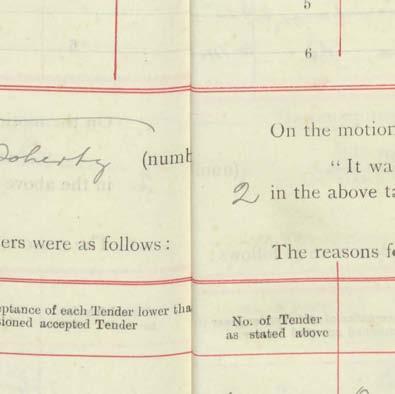 5
6
Doherty (numb
ers were as follows:
eptance of each Tender lower tha
sioned accepted Tender
On the motion
"It wa
2 in the above ta
The reasons f
No. of Tender
as stated above